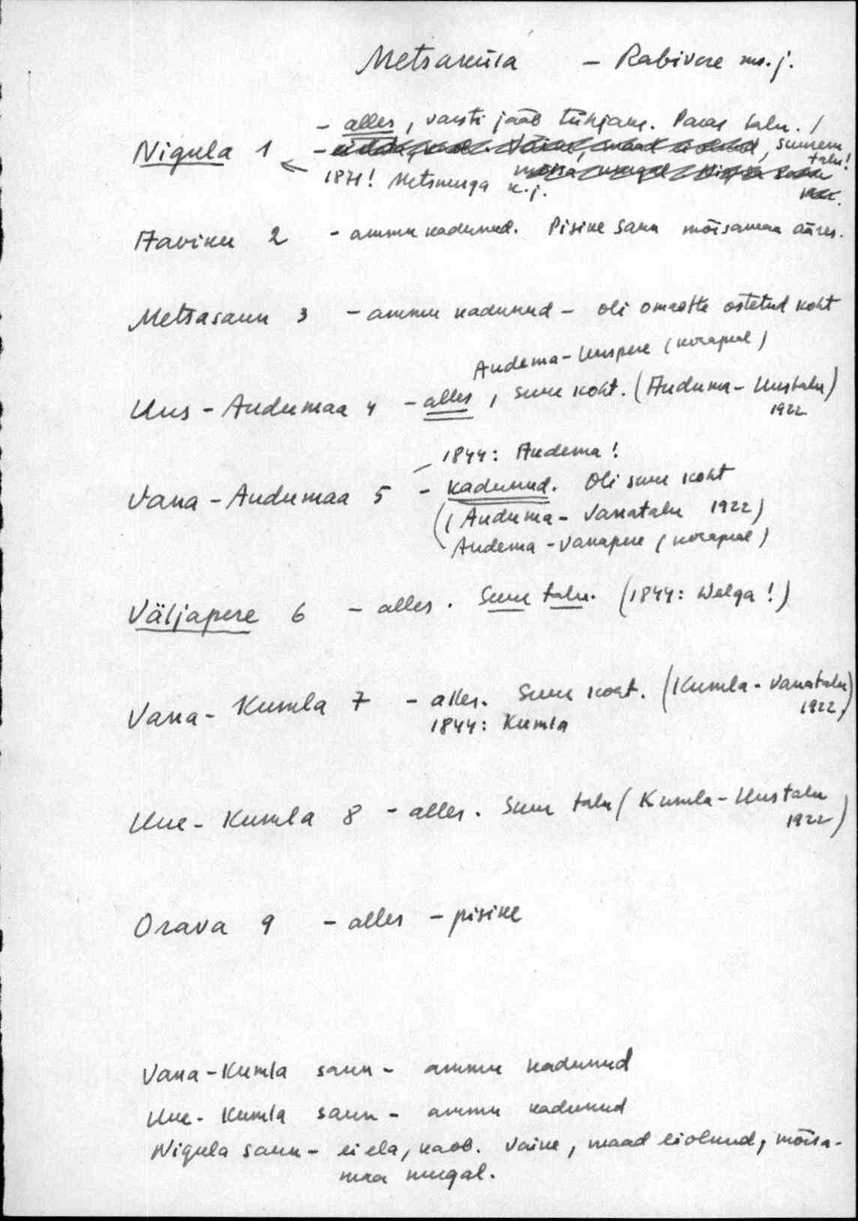 Metsaküla - Rabivere ms. j.
- alles, varsti jääb tühjaks. Paras talu. /
Nigula 1 - , suurem talu!
1871! Metsnurga k. j.
Haviku 2 - ammu kadunud. Pisike saun mõisamaa ääres.
Metsasaun 3 - ammu kadunud - oli omaette ostetud koht
Audema-Uuspere (kirapeal)
Uus-Audumaa 4 - alles, suur koht. (Auduma-Uustalu) 1922
1844: Audema!
Vana-Audumaa 5 - kadunud. Oli suur koht
(Auduma-Vanatalu 1922)
Audema-Vanapere
Väljapere 6 - alles. Suur talu. (1844: Welga!)
Vana-Kumla 7 - alles. Suur koht. (Kumla-Vanatalu 1922)
1844: Kumla
Uue-Kumla 8 - alles. Suur talu (Kumla-Uustalu 1922)
Orava 9 - alles - pisike
Vana-Kumla saun - ammu kadunud
Uue-Kumla saun - ammu kadunud
Nigula saun - ei ela, kaob. Väike, maad ei olnud, mõisa-
maa nurgal.